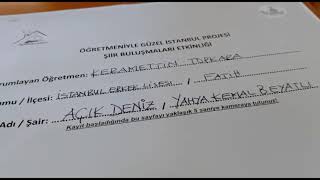 ÖĞRETMENİYLE GÜZEL İSTANBUL PROJESİ
ŞİİR BULUŞMALARI ETKİNLİĞİ
rumlayan Öğretmen: KERAMETTİN
umu / İlçesi: İSTANBUL ERKEK LİSESİ / FATİH
Adı / Şair: AÇIK DENİZ / YAHYA KEMAL BEYATLI
Kayıt başladığında bu sayfayı yaklaşık 5 saniye kameraya tutunuz!